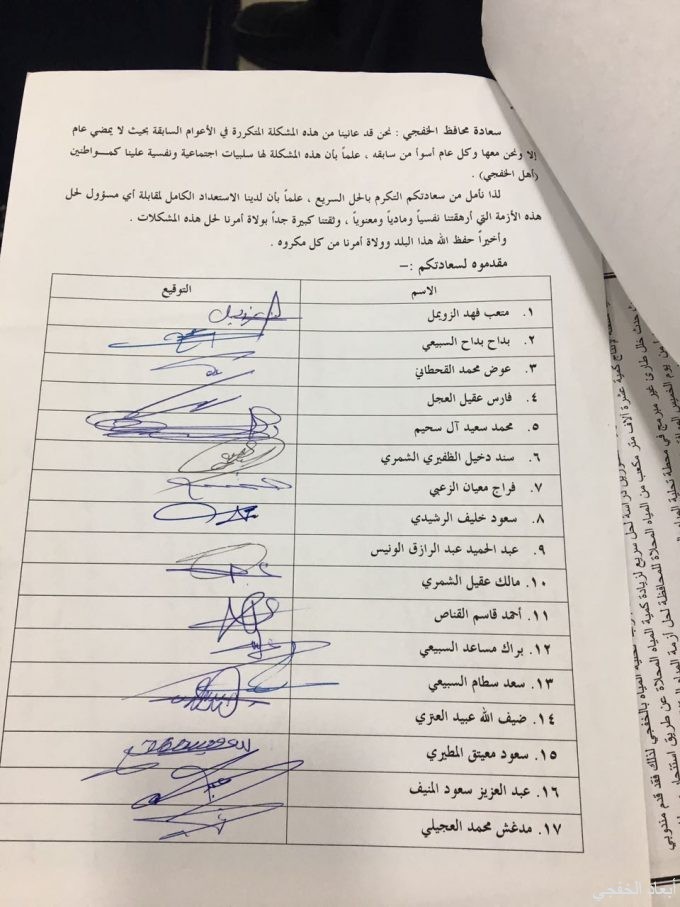 سعادة محافظ الخفجي : نحن قد عانينا من هذه المشكلة المتكررة في الأعوام السابقة بحيث لا يمضي عام
إلا ونحن معها وكل عام أسوأ من سابقه ، علماً بأن هذه المشكلة لها سلبيات اجتماعية ونفسية علينا كمواطنين
(أهل الخفجي) .
لذا نأمل من سعادتكم التكرم بالحل السريع ، علماً بأن لدينا الاستعداد الكامل لمقابلة أي مسؤول لحل
هذه الأزمة التي أرهقتنا نفسياً ومادياً ومعنوياً ، وثقتنا كبيرة جداً بولاة أمرنا لحل هذه المشكلات .
وأخيراً حفظ الله هذا البلد وولاة أمرنا من كل مكروه .
مقدموه لسعادتكم :–
الاسم التوقيع
١. متعب فهد الزويمل
٢. بداح بداح السبيعي
٣. عوض محمد القحطاني
٤. فارس عقيل العجل
٥. محمد سعيد آل سحيم
٦. سند دخيل الظفيري الشمري
٧. فراج معيان الزعبي
٨. سعود خليف الرشيدي
٩. عبد الحميد عبد الرازق الونيس
١٠. مالك عقيل الشمري
١١. أحمد قاسم القناص
١٢. براك مساعد السبيعي
١٣. سعد سطام السبيعي
١٤. ضيف الله عبيد العنزي
١٥. سعود معيتق المطيري
١٦. عبد العزيز سعود المنيف
١٧. مدغش محمد العجيلي
أبعاد الخفجي